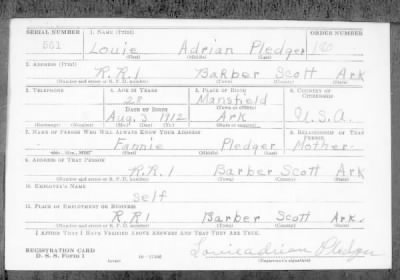 SERIAL NUMBER 1. NAME (Print) ORDER NUMBER
561 Louie Adrian Pledger
(First) (Middle) (Last)
2. ADDRESS (Print)
R.R.1 Barber Scott Ark
(Number and street or R. F. D. number) (Town) (County) (State)
3. TELEPHONE 4. AGE IN YEARS 5. PLACE OF BIRTH 6. COUNTRY OF CITIZENSHIP
28 Mansfield
DATE OF BIRTH (Town or county)
Aug. 3 1912 Ark U.S.A.
(Exchange) (Number) (Mo.) (Day) (Yr.) (State or country)
7. NAME OF PERSON WHO WILL ALWAYS KNOW YOUR ADDRESS 8. RELATIONSHIP OF THAT PERSON
Fannie Pledger Mother
(Mr., Mrs., Miss) (First) (Middle) (Last)
9. ADDRESS OF THAT PERSON
R.R.1 Barber Scott Ark
(Number and street or R. F. D. number) (Town) (County) (State)
10. EMPLOYER'S NAME
Self
11. PLACE OF EMPLOYMENT OR BUSINESS
R.R.1 Barber Scott Ark.
(Number and street or R. F. D. number) (Town) (County) (State)
I AFFIRM THAT I HAVE VERIFIED ABOVE ANSWERS AND THAT THEY ARE TRUE.
REGISTRATION CARD
D. S. S. Form 1 Louie adrian Pledger
(Registrant's signature)